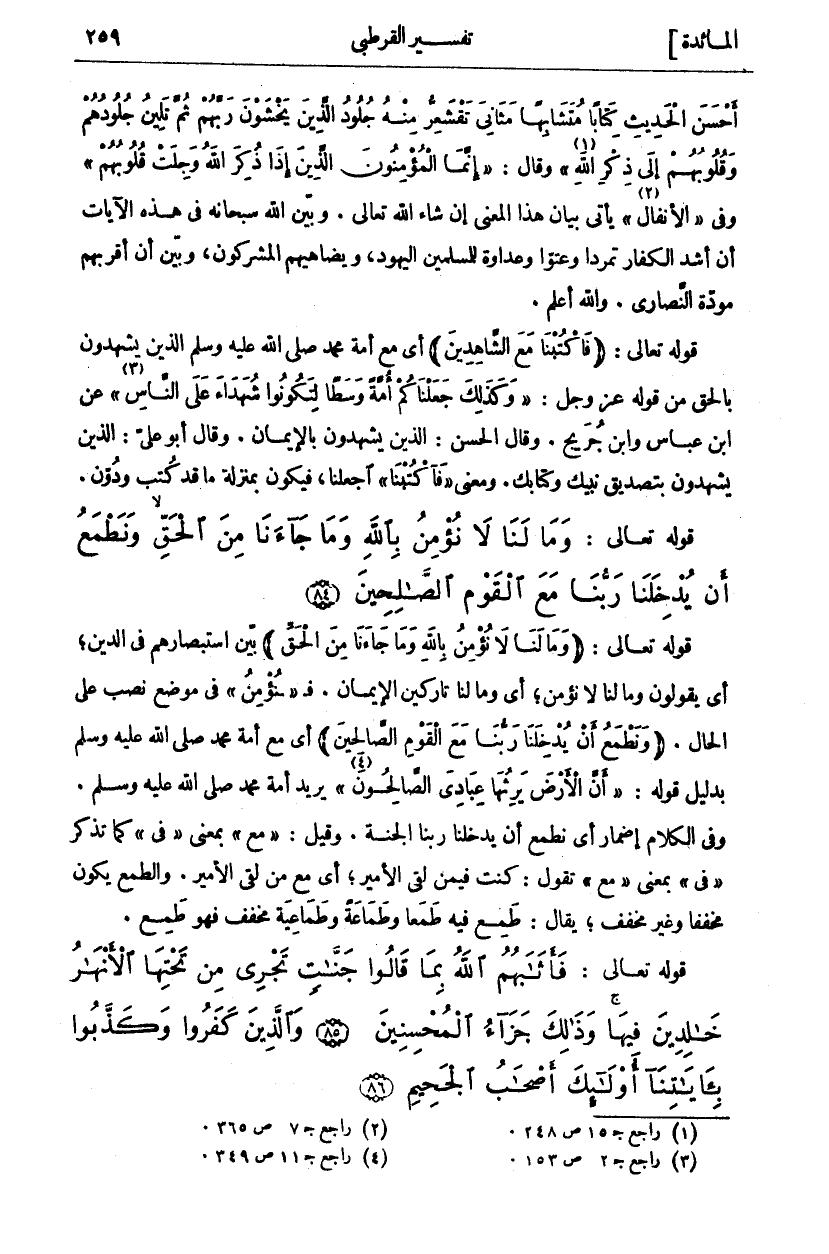 المائدة ] تفسير القرطبى ٢٥٩
أَحْسَنَ الْحَدِيثِ كِتَابًا مُتَشَابِهًا مَثَانِىَ تَقْشَعِرُّ مِنْهُ جُلُودُ الَّذِينَ يَخْشَوْنَ رَبَّهُمْ ثُمَّ تَلِينُ جُلُودُهُمْ
وَقُلُوبُهُمْ إِلَى ذِكْرِ اللهِ (١) » وقال : « إِنَّمَا الْمُؤْمِنُونَ الَّذِينَ إِذَا ذُكِرَ اللهُ وَجِلَتْ قُلُوبُهُمْ »
وفى « الأنفال (٢) » يأتى بيان هذا المعنى إن شاء الله تعالى . وبيّن الله سبحانه فى هذه الآيات
أن أشد الكفار تمردا وعتوّا وعداوة للمسلمين اليهود، ويضاهيهم المشركون، وبيّن أن أقربهم
مودّة النَّصارى . والله أعلم .
قوله تعالى : ﴿ فَاكْتُبْنَا مَعَ الشَّاهِدِينَ ﴾ أى مع أمة محمد صلى الله عليه وسلم الذين يشهدون
بالحق من قوله عز وجل : « وَكَذَلِكَ جَعَلْنَاكُمْ أُمَّةً وَسَطًا لِتَكُونُوا شُهَدَاءَ عَلَى النَّاسِ (٣) » عن
ابن عباس وابن جُرَيج . وقال الحسن : الذين يشهدون بالإيمان . وقال أبو علىّ : الذين
يشهدون بتصديق نبيك وكتابك. ومعنى «فَاكْتُبْنَا» اجعلنا، فيكون بمنزلة ما قد كُتب ودُوّن.
قوله تعالى : وَمَا لَنَا لَا نُؤْمِنُ بِٱللَّهِ وَمَا جَآءَنَا مِنَ ٱلْحَقِّ وَنَطْمَعُ
أَن يُدْخِلَنَا رَبُّنَا مَعَ ٱلْقَوْمِ ٱلصَّـٰلِحِينَ ﴿٨٤﴾
قوله تعالى : ﴿ وَمَا لَنَا لَا نُؤْمِنُ بِاللهِ وَمَا جَاءَنَا مِنَ الْحَقِّ ﴾ بيّن استبصارهم فى الدين؛
أى يقولون وما لنا لا نؤمن؛ أى وما لنا تاركين الإيمان . فـ « ـنُؤْمِنُ » فى موضع نصب على
الحال . ﴿ وَنَطْمَعُ أَنْ يُدْخِلَنَا رَبُّنَا مَعَ الْقَوْمِ الصَّالِحِينَ ﴾ أى مع أمة محمد صلى الله عليه وسلم
بدليل قوله : « أَنَّ الْأَرْضَ يَرِثُهَا عِبَادِىَ الصَّالِحُونَ (٤) » يريد أمة محمد صلى الله عليه وسلم .
وفى الكلام إضمار أى نطمع أن يدخلنا ربنا الجنة . وقيل : « مع » بمعنى « فى » كما تذكر
« فى » بمعنى « مع » تقول : كنت فيمن لقى الأمير؛ أى مع من لقى الأمير . والطمع يكون
مخففا وغير مخفف ؛ يقال : طَمِع فيه طَمَعا وطَمَاعَةً وطَمَاعِيَة مخفف فهو طَمِع .
قوله تعالى : فَأَثَـٰبَهُمُ ٱللَّهُ بِمَا قَالُوا جَنَّـٰتٍ تَجْرِى مِن تَحْتِهَا ٱلْأَنْهَـٰرُ
خَـٰلِدِينَ فِيهَا ۚ وَذَٰلِكَ جَزَآءُ ٱلْمُحْسِنِينَ ﴿٨٥﴾ وَٱلَّذِينَ كَفَرُوا وَكَذَّبُوا
بِـَٔايَـٰتِنَآ أُوْلَـٰٓئِكَ أَصْحَـٰبُ ٱلْجَحِيمِ ﴿٨٦﴾
(١) راجع جـ ١٥ ص ٢٤٨ . (٢) راجع جـ ٧ ص ٣٦٥ .
(٣) راجع جـ ٢ ص ١٥٣ . (٤) راجع جـ ١١ ص ٣٤٩ .